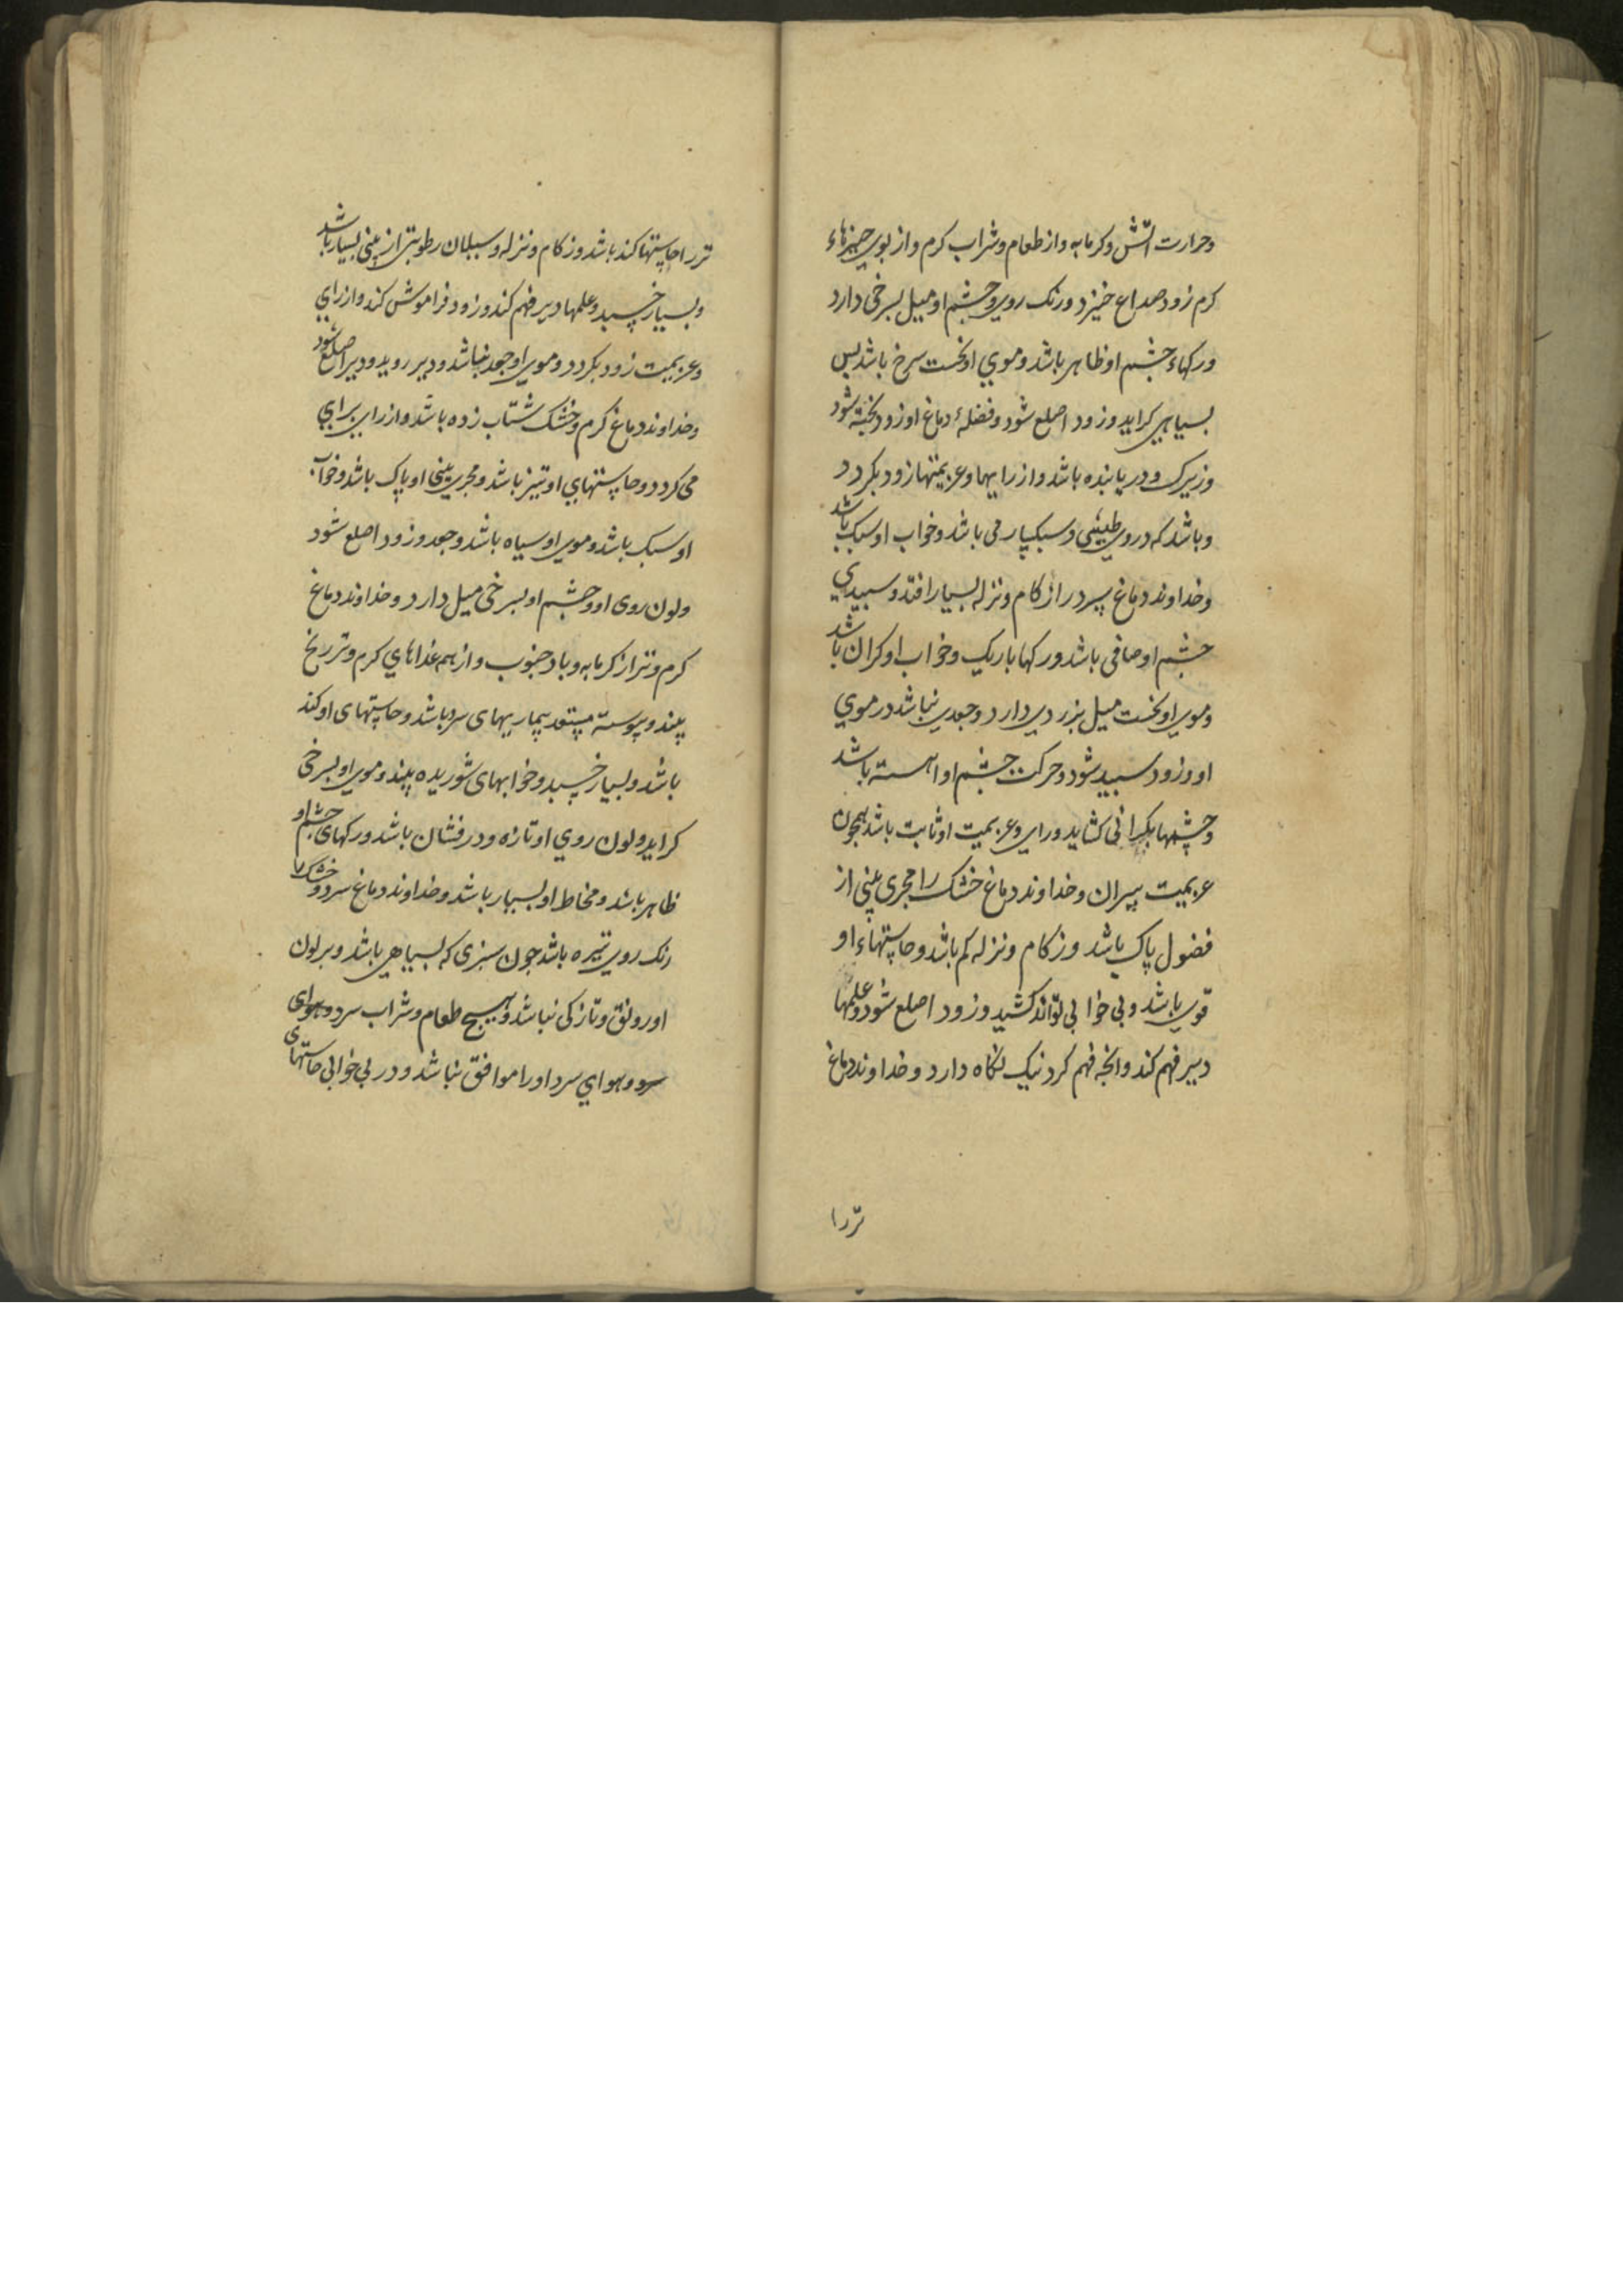 وحرارت اتش وکرمابه واز طعام وشراب کرم واز بوی چیزهاء
کرم زود صداع خیزد ورنک روی وچشم او میل بسرخی دارد
ورکهاء چشم او ظاهر باشد وموی او نخست سرخ باشد بس
بسیاهی کراید وزود اصلع شود وفضلهٔ دماغ او زود بخته شود
وزیرک ودریابنده باشد واز رایها وعزیمتها زود بکردد
وباشد که دروی طیشی وسبکساری باشد وخواب او سبک باشد
وخداوند دماغ سرد را زکام ونزله بسیار افتد وسبیدی
چشم او صافی باشد ورکها باریک وخواب او کران باشد
وموی او نخست میل بزردی دارد وجعدی نباشد در موی
او وزود سبید شود وحرکت چشم او اهسته باشد
وچشمها بکرانی کشاید ورای وعزیمت او ثابت باشد همچون
عزیمت بیران وخداوند دماغ خشک را مجری بینی از
فضول پاک باشد وزکام ونزله کم باشد وحاستهاء او
قوی باشد وبی خوابی تواند کشید وزود اصلع شود وعلمها
دیر فهم کند وانچه فهم کرد نیک نکاه دارد وخداوند دماغ
تر را
تر را حاستها کند باشد وزکام ونزله وسیلان رطوبتی از بینی بسیار باشد
وبسیار خسبد وعلمها دیر فهم کند وزود فراموش کند واز رای
وعزیمت زود بکردد وموی او جعد نباشد ودیر روید ودیر اصلع شود
وخداوند دماغ کرم وخشک شتاب زده باشد واز رای برای
می کردد وحاستهای او تیز باشد ومجری بینی او پاک باشد وخواب
او سبک باشد وموی او سیاه باشد وجعد وزود اصلع شود
ولون روی او وچشم او بسرخی میل دارد وخداوند دماغ
کرم وتر از کرمابه وباد جنوب واز همه غذاهای کرم وتر رنج
بیند وپیوسته مستعد بیماریهای سر باشد وحاستهای او کند
باشد وبسیار خسبد وخوابهای شوریده بیند وموی او بسرخی
کراید ولون روی او تازه ودرفشان باشد ورکهای چشم او
ظاهر باشد ومخاط او بسیار باشد وخداوند دماغ سرد وخشک را
رنک روی تیره باشد چون سبزی که بسیاهی باشد وبر لون
او رونق وتازکی نباشد وهیچ طعام وشراب سرد وهوای
سرد وهوای سرد او را موافق نباشد ودر بی خوابی حاستهای